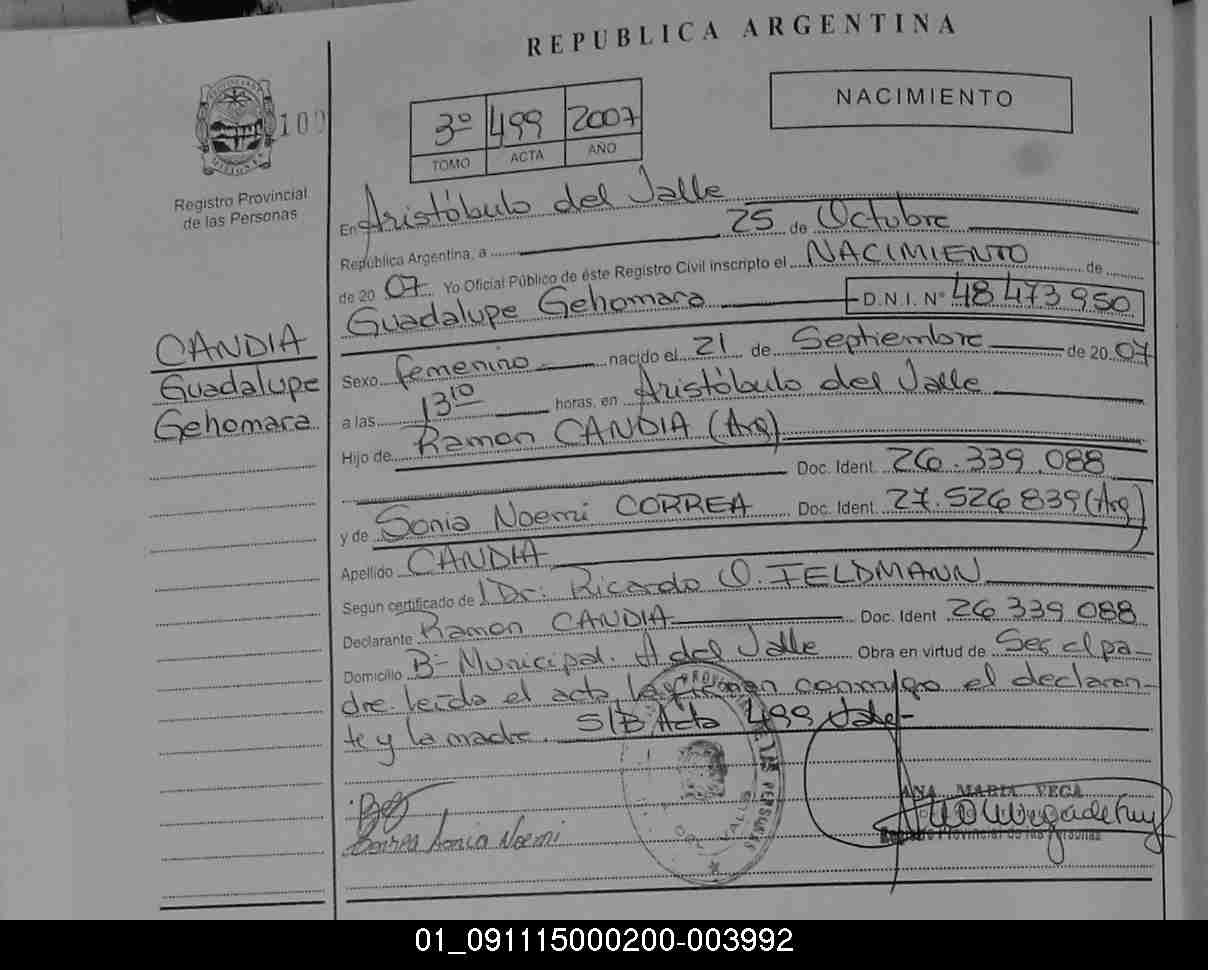 REPUBLICA ARGENTINA
3º 499 2007
TOMO ACTA AÑO
NACIMIENTO
100
Registro Provincial
de las Personas
En Aristóbulo del Valle
República Argentina, a 25 de Octubre
de 20 07 Yo Oficial Público de éste Registro Civil inscripto el NACIMIENTO de
Guadalupe Gehomara D.N.I. Nº 48 473 950
CANDIA
Guadalupe
Gehomara
Sexo femenino nacido el 21 de Septiembre de 20 07
a las 13 10 horas, en Aristóbulo del Valle
Hijo de Ramon CANDIA (Arg)
Doc. Ident. 26.339.088
y de Sonia Noemi CORREA Doc. Ident. 27.526.839 (Arg)
Apellido CANDIA
Segun certificado de Dr: Ricardo O. FELDMANN
Declarante Ramon CANDIA Doc. Ident 26 339 088
Domicilio Bº Municipal. A del Valle Obra en virtud de Ser el pa-
dre. leida el acta la firman conmigo el declaran-
te y la madre. S/B Acta 499 Vale-
Correa Sonia Noemi
ANA MARIA VEGA
Registro Provincial de las Personas
01_091115000200-003992